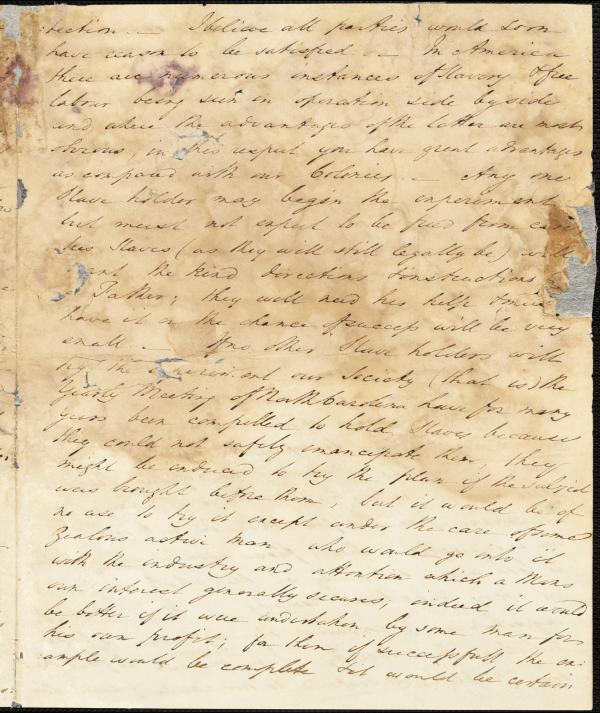 tection. — I believe all parties would soon
have reason to be satisfied — In America
there are numerous instances of Slavery & free
labour being seen in operation side by side
and where the advantages of the latter are most
obvious, in this respect you have great advantages
as compared with our Colonies. — Any one
Slave holder may begin the experiment
but must not expect to be freed from care
his Slaves (as they will still legally be) will
the kind directions & instructions
Father; they will need his help & must
have it or the chance of success will be very
small — If no other Slave holders will
try the experiment our Society (that is) the
Yearly Meeting of North Carolina have for many
years been compelled to hold Slaves because
they could not safely emancipate them, they
might be induced to try the plan if the subject
was brought before them, but it would be of
no use to try it except under the care of some
Zealous active man who would go into it
with the industry and attention which a Mans
own interest generally secures; indeed it would
be better if it were undertaken by some man for
his own profit; for then if successfull the ex:
ample would be complete & it would be certain